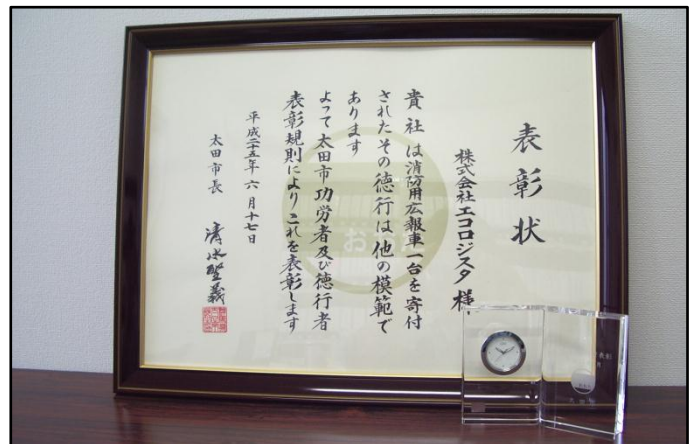 表彰状
株式会社エコロジスタ 様
貴社は消防用広報車一台を寄付
されたその徳行は他の模範で
あります
よって太田市功労者及び徳行者
表彰規則によりこれを表彰します
平成二十五年六月十七日
太田市長 清水聖義
おおた